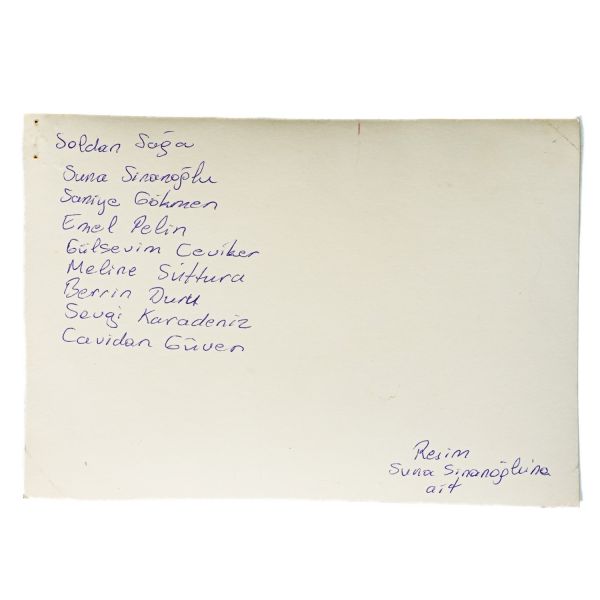 Soldan Sağa
Suna Sinanoğlu
Saniye Gökmen
Emel Pelin
Gülsevim Ceviker
Meline Süttura
Berrin Duru
Sevgi Karadeniz
Cavidan Güven
Resim
Suna Sinanoğluna
ait